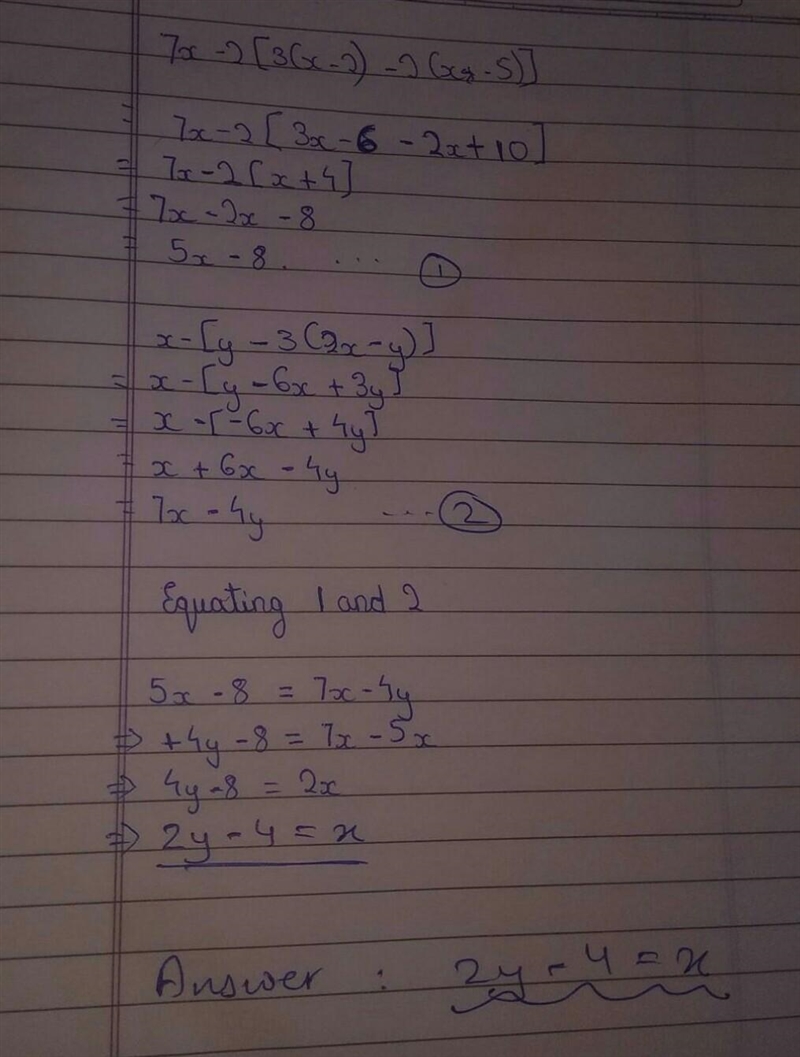 7x-2[3(x-2) -2(x-5)]
= 7x-2[3x-6 -2x+10]
= 7x-2[x+4]
= 7x-2x -8
= 5x-8. ... ①
x-[y-3(2x-y)]
= x-[y-6x+3y]
= x-[-6x+4y]
= x+6x-4y
= 7x-4y ... ②
Equating 1 and 2
5x-8 = 7x-4y
⇒ +4y-8 = 7x-5x
⇒ 4y-8 = 2x
⇒ 2y-4 = x
Answer : 2y-4=x